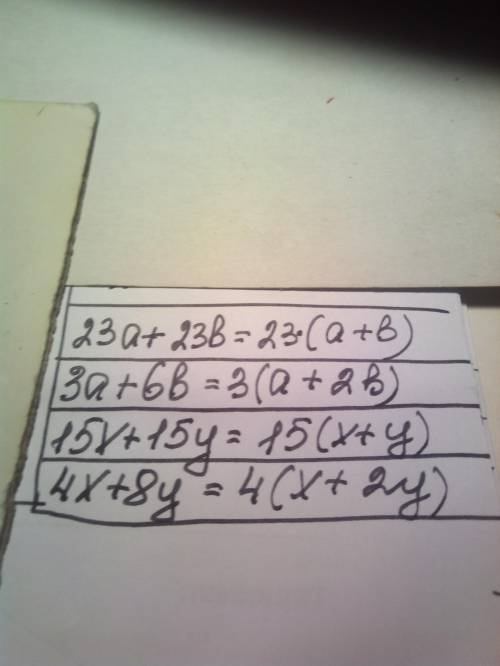 23a+23b=23·(a+b)
3a+6b=3(a+2b)
15x+15y=15(x+y)
4x+8y=4(x+2y)